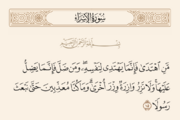 سُورَةُ الإِسْرَاءِ
مَّنِ ٱهْتَدَىٰ فَإِنَّمَا يَهْتَدِى لِنَفْسِهِۦ ۖ وَمَن ضَلَّ فَإِنَّمَا يَضِلُّ
عَلَيْهَا ۚ وَلَا تَزِرُ وَازِرَةٌ وِزْرَ أُخْرَىٰ ۗ وَمَا كُنَّا مُعَذِّبِينَ حَتَّىٰ نَبْعَثَ
رَسُولًا